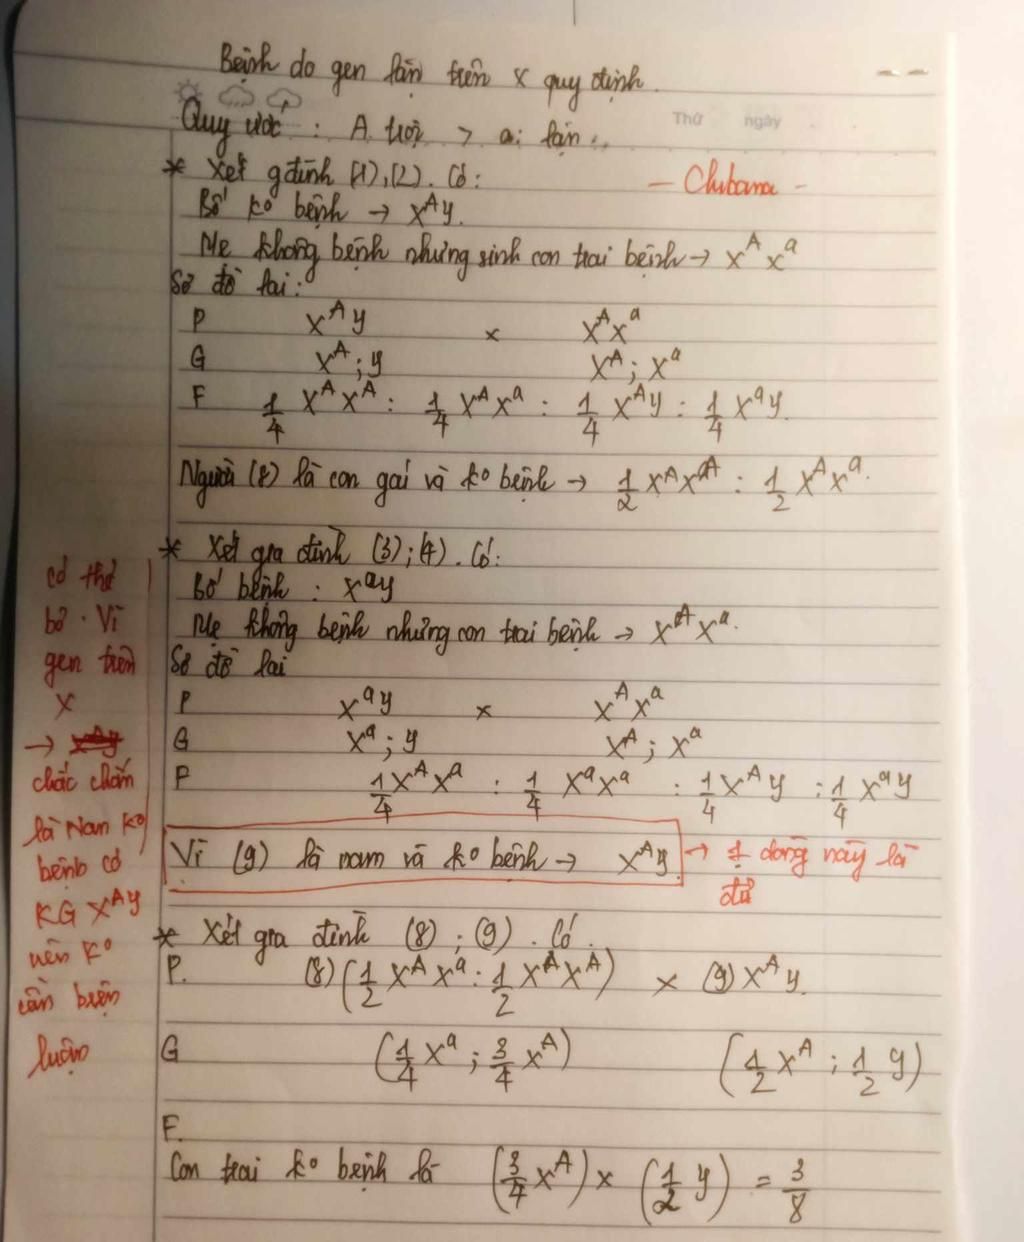 Bệnh do gen lặn trên X quy định.
Thứ ngày
Quy ước : A trội > a: lặn.
* Xét gđình (1),(2). Có:
- Chibana -
Bố ko bệnh → X^A Y.
Mẹ không bệnh nhưng sinh con trai bệnh → X^A X^a
Sơ đồ lai:
P X^A Y × X^A X^a
G X^A ; Y X^A ; X^a
F 1/4 X^A X^A : 1/4 X^A X^a : 1/4 X^A Y : 1/4 X^a Y.
Người (8) là con gái và ko bệnh → 1/2 X^A X^A : 1/2 X^A X^a.
* Xét gia đình (3);(4). Có:
Bố bệnh : X^a Y
Mẹ không bệnh nhưng con trai bệnh → X^A X^a.
Sơ đồ lai
P X^a Y × X^A X^a
G X^a ; Y X^A ; X^a
F 1/4 X^A X^a : 1/4 X^a X^a : 1/4 X^A Y : 1/4 X^a Y
Vì (9) là nam và ko bệnh → X^A Y → 1 dòng này là
đủ
có thể
bỏ. Vì
gen trên
X
→
chắc chắn
là Nam ko
bệnh có
KG X^A Y
nên ko
cần biện
luận
* Xét gia đình (8) ; (9). Có.
P. (8) (1/2 X^A X^a : 1/2 X^A X^A) × (9) X^A Y.
G (1/4 X^a ; 3/4 X^A) (1/2 X^A ; 1/2 Y)
F.
Con trai ko bệnh là (3/4 X^A) × (1/2 Y) = 3/8